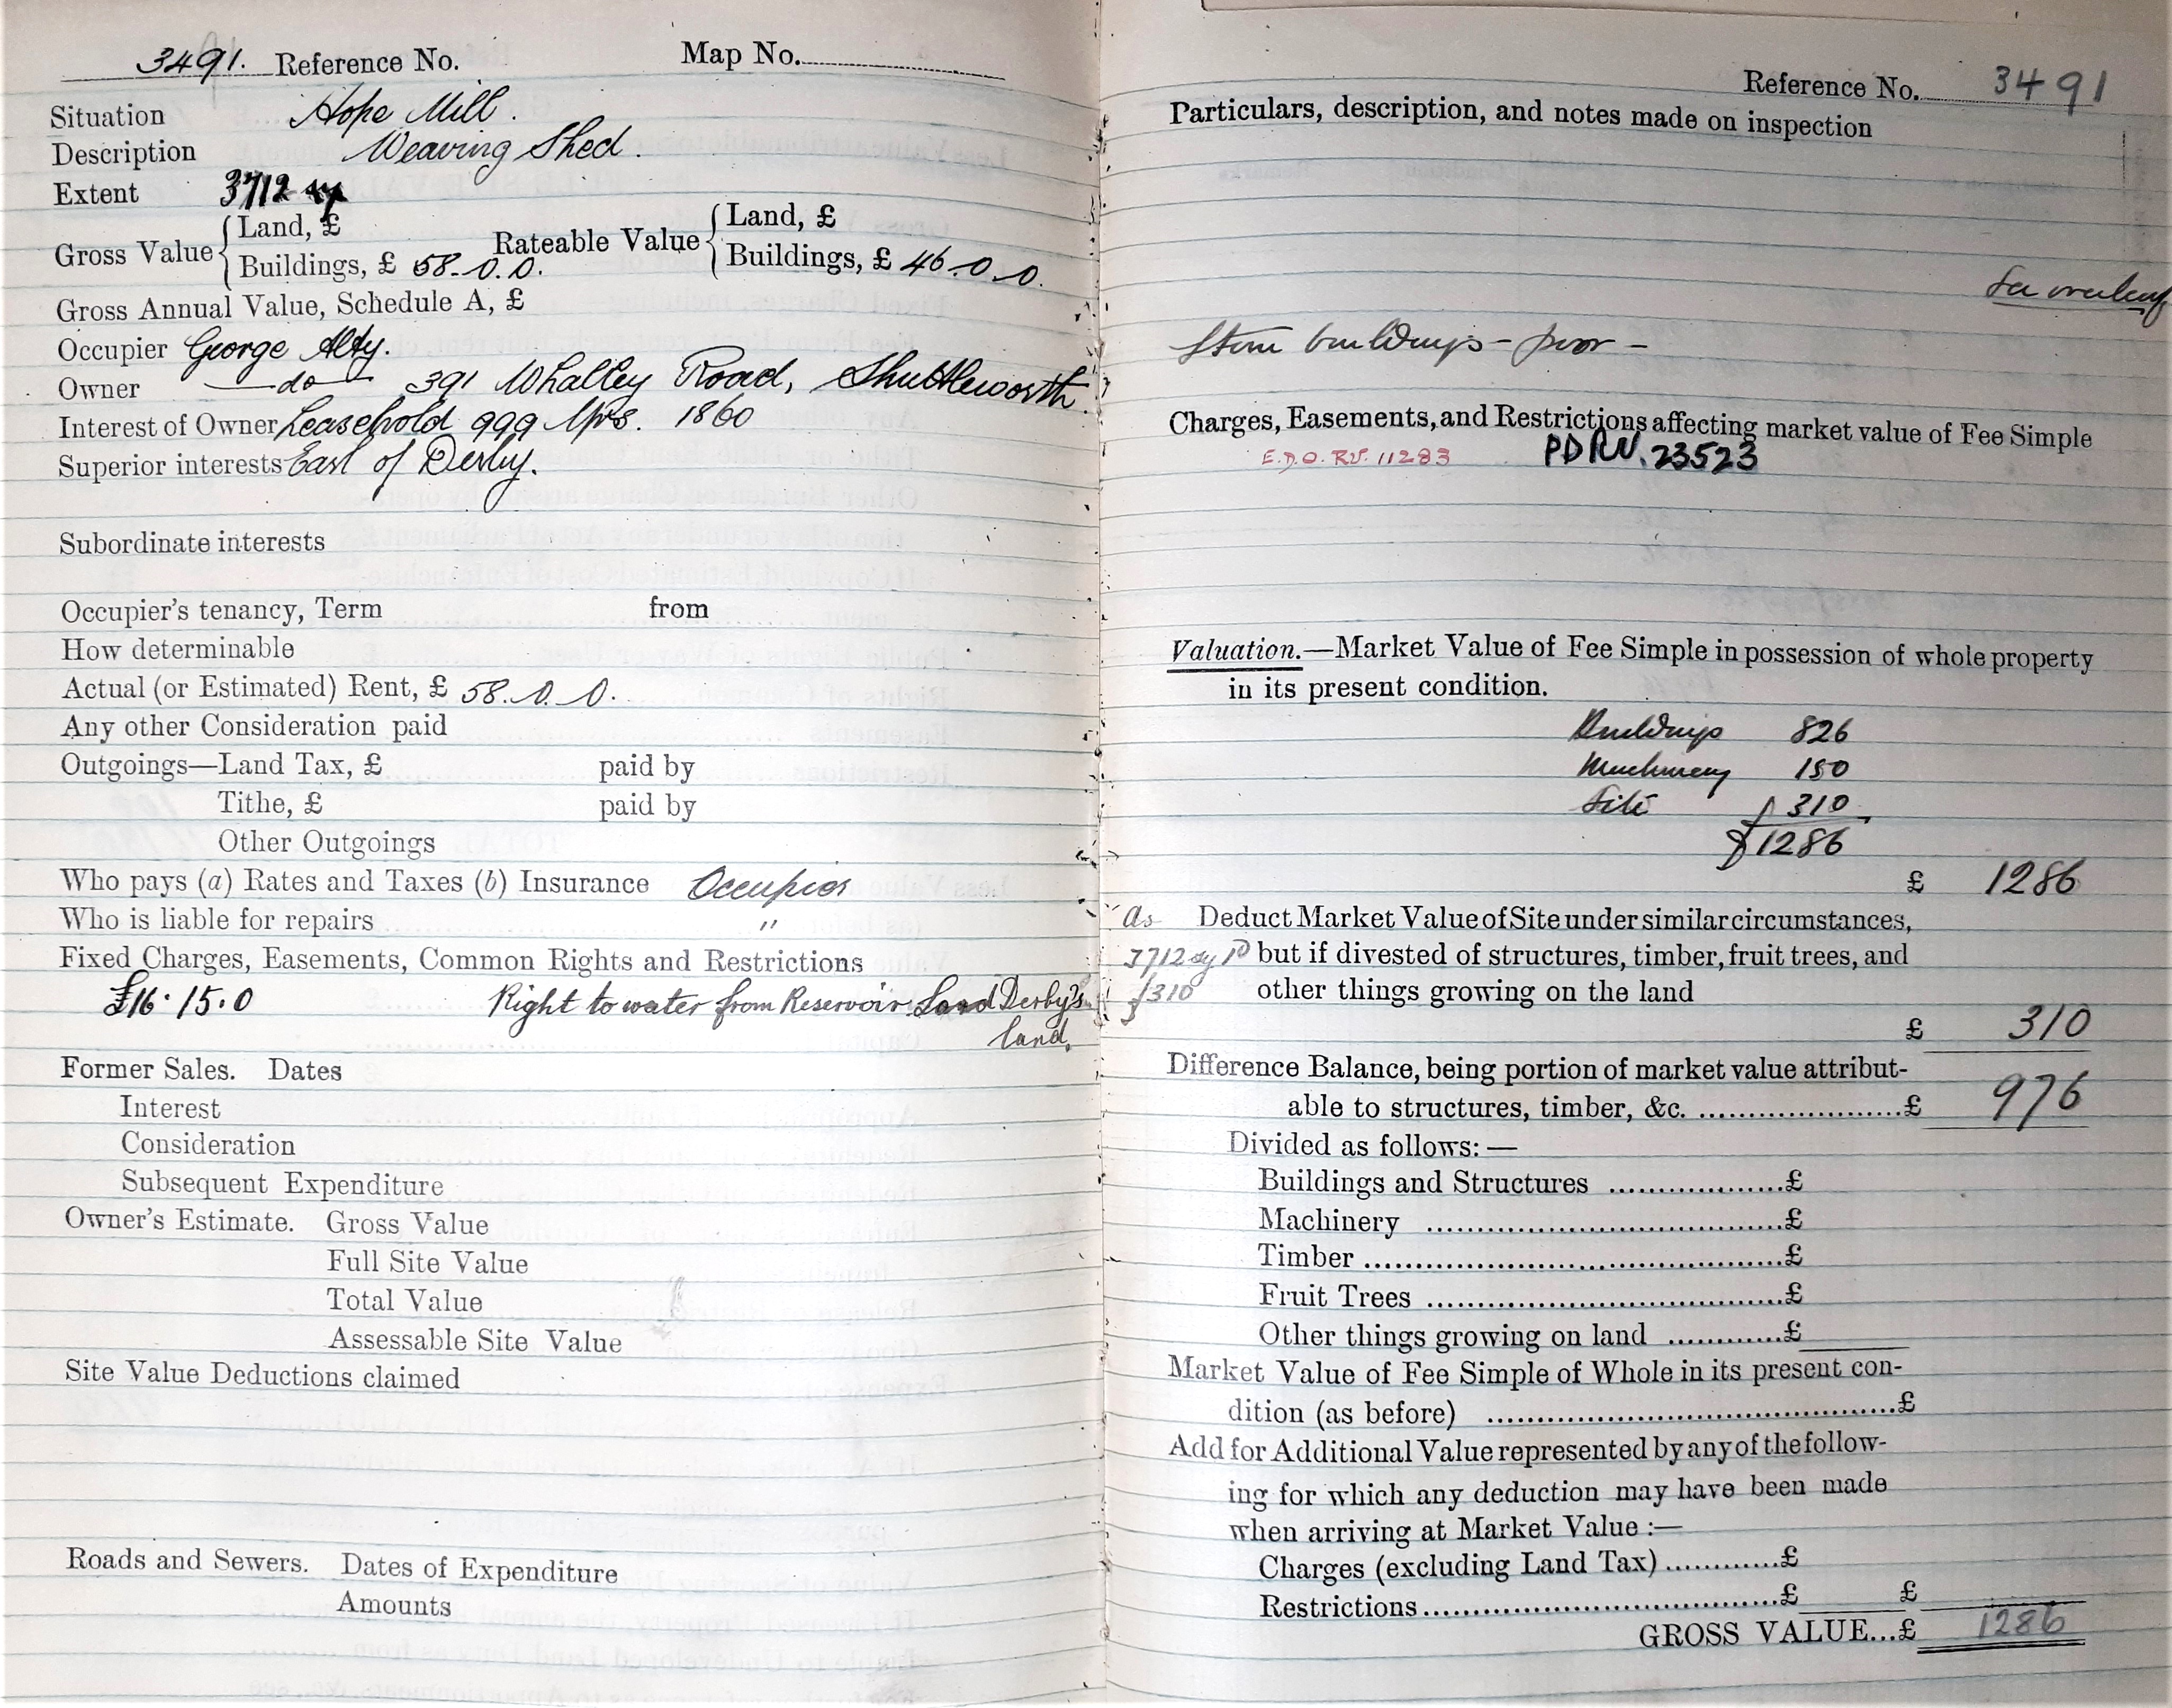 3491. Reference No. Map No.
Situation Hope Mill.
Description Weaving Shed.
Extent 3712 sy
Gross Value { Land, £
Buildings, £ 58. 0. 0.
Rateable Value { Land, £
Buildings, £ 46. 0. 0.
Gross Annual Value, Schedule A, £
Occupier George Alty.
Owner — do — 391 Whalley Road, Shuttleworth.
Interest of Owner Leasehold 999 Yrs. 1860
Superior interests Earl of Derby.
Subordinate interests
Occupier's tenancy, Term from
How determinable
Actual (or Estimated) Rent, £ 58. 0. 0.
Any other Consideration paid
Outgoings—Land Tax, £ paid by
Tithe, £ paid by
Other Outgoings
Who pays (a) Rates and Taxes (b) Insurance Occupier
Who is liable for repairs "
Fixed Charges, Easements, Common Rights and Restrictions
£16. 15. 0 Right to water from Reservoir Lord Derby's
land.
Former Sales. Dates
Interest
Consideration
Subsequent Expenditure
Owner's Estimate. Gross Value
Full Site Value
Total Value
Assessable Site Value
Site Value Deductions claimed
Roads and Sewers. Dates of Expenditure
Amounts
Reference No. 3491
Particulars, description, and notes made on inspection
See overleaf
Stone buildings - poor -
Charges, Easements, and Restrictions affecting market value of Fee Simple
E.D.O. RV. 11283 PDRV. 23523
Valuation.—Market Value of Fee Simple in possession of whole property
in its present condition.
Buildings 826
Machinery 150
Site 310
£1286
£ 1286
as Deduct Market Value of Site under similar circumstances,
3712 sy but if divested of structures, timber, fruit trees, and
£310 other things growing on the land
£ 310
Difference Balance, being portion of market value attribut-
able to structures, timber, &c. ....................£ 976
Divided as follows:—
Buildings and Structures ..................£
Machinery ..................£
Timber ..................£
Fruit Trees ..................£
Other things growing on land ............£
Market Value of Fee Simple of Whole in its present con-
dition (as before) ..................£
Add for Additional Value represented by any of the follow-
ing for which any deduction may have been made
when arriving at Market Value :—
Charges (excluding Land Tax)............£
Restrictions..................£ £
GROSS VALUE...£ 1286